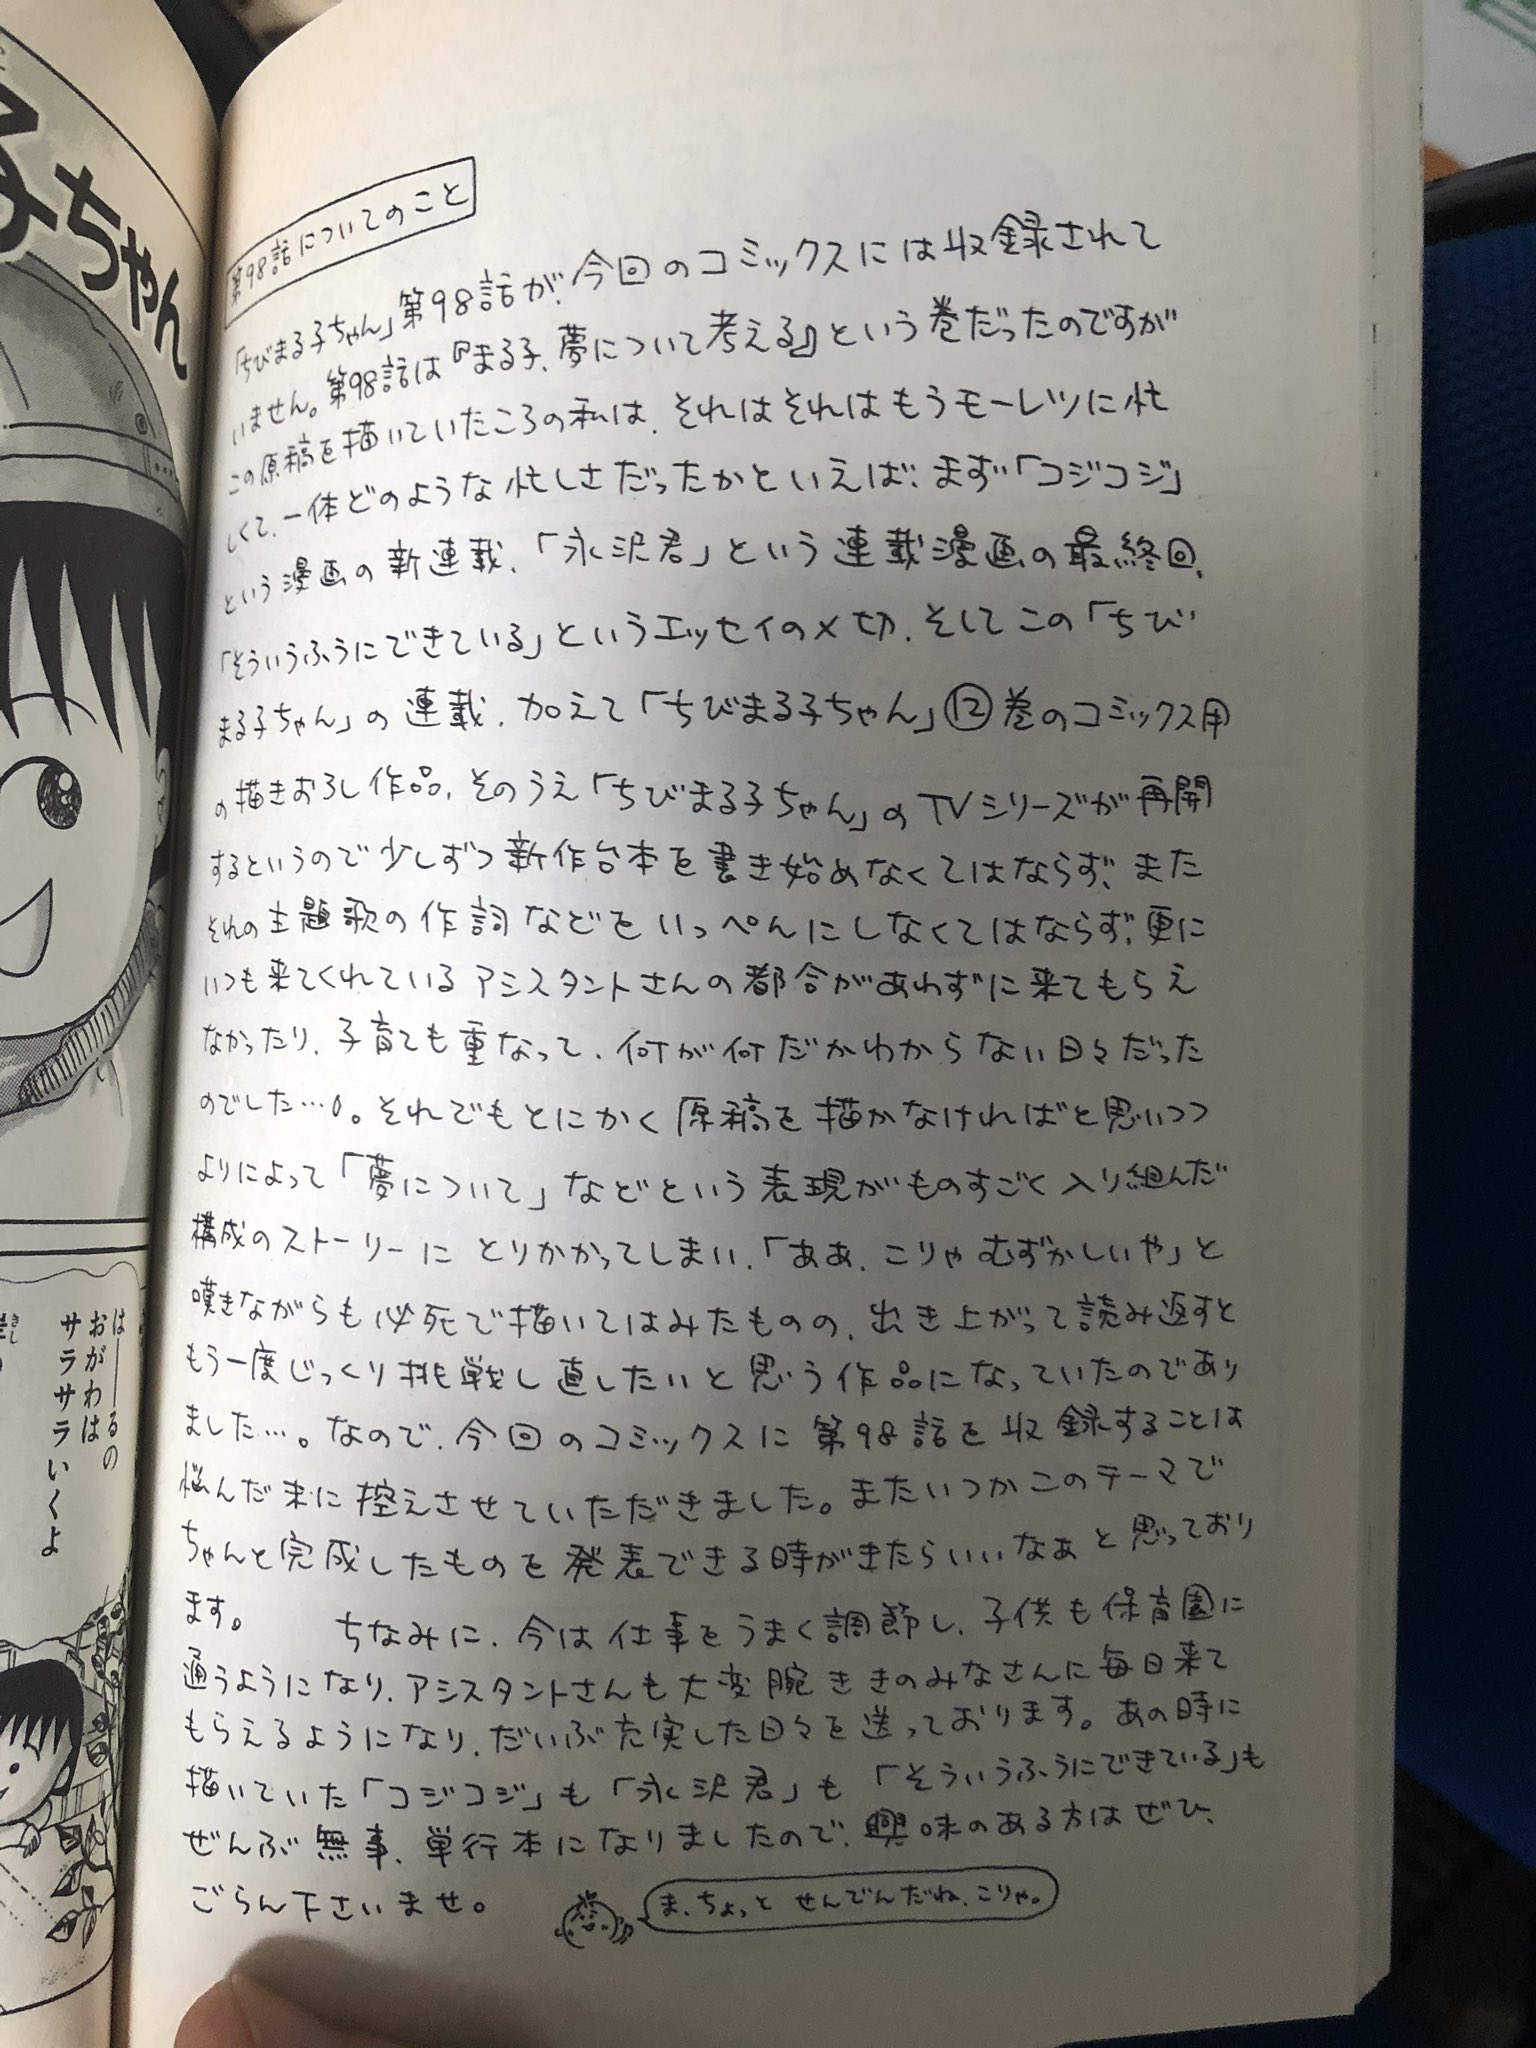 第98話についてのこと
「ちびまる子ちゃん」第98話が、今回のコミックスには収録されて
いません。第98話は『まる子、夢について考える』という巻だったのですが
この原稿を描いていたころの私は、それはそれはもうモーレツに忙
しくて、一体どのような忙しさだったかといえば、まず「コジコジ」
という漫画の新連載、「永沢君」という連載漫画の最終回、
「そういうふうにできている」というエッセイの〆切、そしてこの「ちび
まる子ちゃん」の連載、加えて「ちびまる子ちゃん」⑫巻のコミックス用
の描きおろし作品、そのうえ「ちびまる子ちゃん」のTVシリーズが再開
するというので少しずつ新作台本を書き始めなくてはならず、また
それの主題歌の作詞などをいっぺんにしなくてはならず、更に
いつも来てくれているアシスタントさんの都合があわずに来てもらえ
なかったり、子育ても重なって、何が何だかわからない日々だった
のでした…。それでもとにかく原稿を描かなければと思いつつ
よりによって「夢について」などという表現がものすごく入り組んだ
構成のストーリーにとりかかってしまい、「ああ、こりゃむずかしいや」と
嘆きながらも必死で描いてはみたものの、出き上がって読み返すと
もう一度じっくり挑戦し直したいと思う作品になっていたのであり
ました…。なので、今回のコミックスに第98話を収録することは
悩んだ末に控えさせていただきました。またいつかこのテーマで
ちゃんと完成したものを発表できる時がきたらいいなぁと思っており
ます。　ちなみに、今は仕事をうまく調節し、子供も保育園に
通うようになり、アシスタントさんも大変腕ききのみなさんに毎日来て
もらえるようになり、だいぶ充実した日々を送っております。あの時に
描いていた「コジコジ」も「永沢君」も「そういうふうにできている」も
ぜんぶ無事、単行本になりましたので、興味のある方はぜひ、
ごらん下さいませ。
ま、ちょっとせんでんだね、こりゃ。
ちゃん
は――るの
おがわは
サラサラいくよ